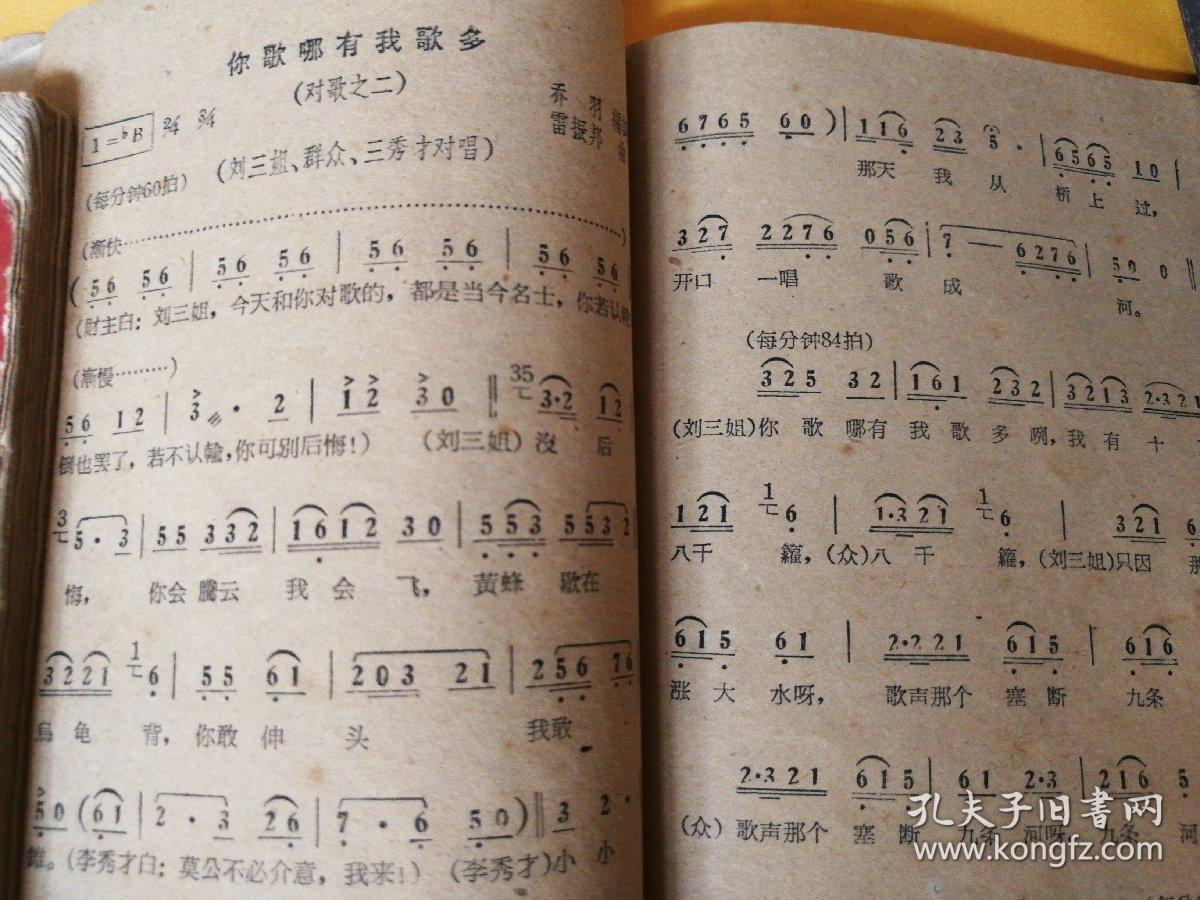 你歌哪有我歌多
(对歌之二)
乔羽
雷振邦 曲
1=♭B 2/4 3/4
(刘三姐、群众、三秀才对唱)
(每分钟60拍)
(漸快……………………)
(56 56 | 56 56 | 56 56 | 56 56
(财主白:刘三姐,今天和你对歌的,都是当今名士,你若认輸
(漸慢………)
56 12 | 3· 2 | 12 30 ‖ 35 3·2 12
倒也罢了,若不认輸,你可別后悔!) (刘三姐)沒 后
3 5·3 | 55 332 | 1612 30 | 553 5532
悔, 你会騰云 我会飞, 黃蜂 歇在
3221 1 6 | 55 61 | 203 21 | 256 76
烏龟 背, 你敢伸 头 我敢
50 (61 | 2·3 26 | 7·6 50) ‖ 3 2·
錐。(李秀才白:莫公不必介意,我来!) (李秀才)小 小
6765 60) | 116 23 5· | 6565 10 |
那天 我 从 桥上 过,
327 2276 056 | 7 — 6276 | 50 0 ‖
开口 一唱 歌 成 河。
(每分钟84拍)
325 32 | 161 232 | 3213 2·321
(刘三姐)你 歌 哪有 我 歌 多 咧,我 有 十
121 1 6 | 1·321 1 6 | 321
八千 籮,(众)八 千 籮,(刘三姐)只因 那
615 61 | 2·221 615 | 616
涨 大 水呀, 歌声那个 塞 断 九条
2·321 615 | 61 2·3 | 216 5
(众) 歌声那个 塞 断 九条 河呀 九条 河
孔夫子旧書网
www.kongfz.com